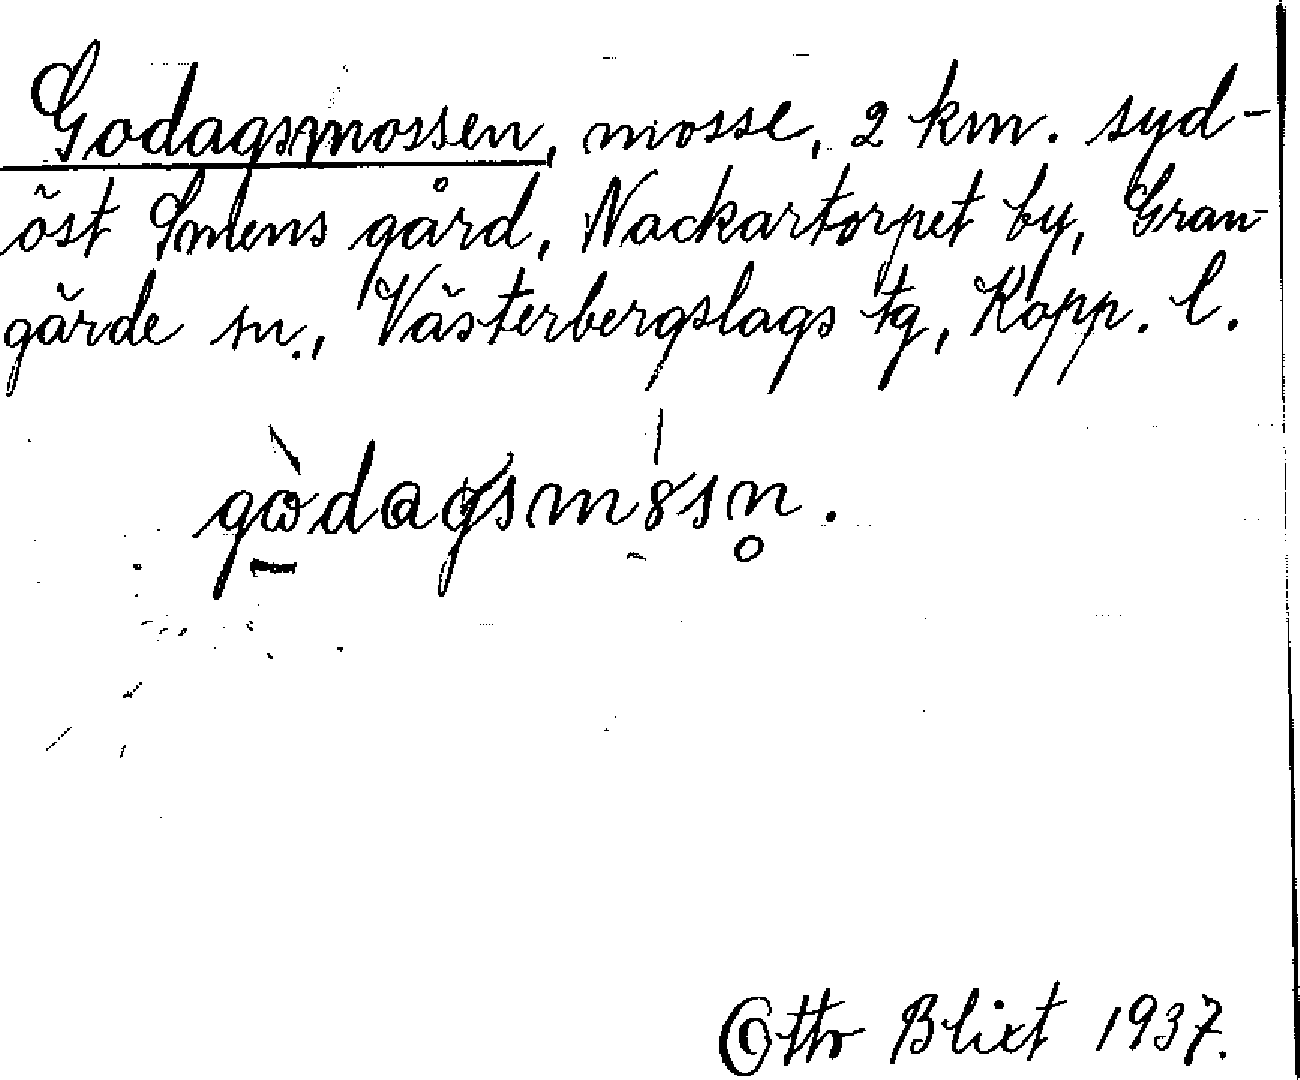 Godagsmossen, mosse, 2 km. syd-
öst Smens gård, Nackartorpet by, Gran-
gärde sn., Västerbergslags tg, Kopp. l.
Otto Blixt 1937.